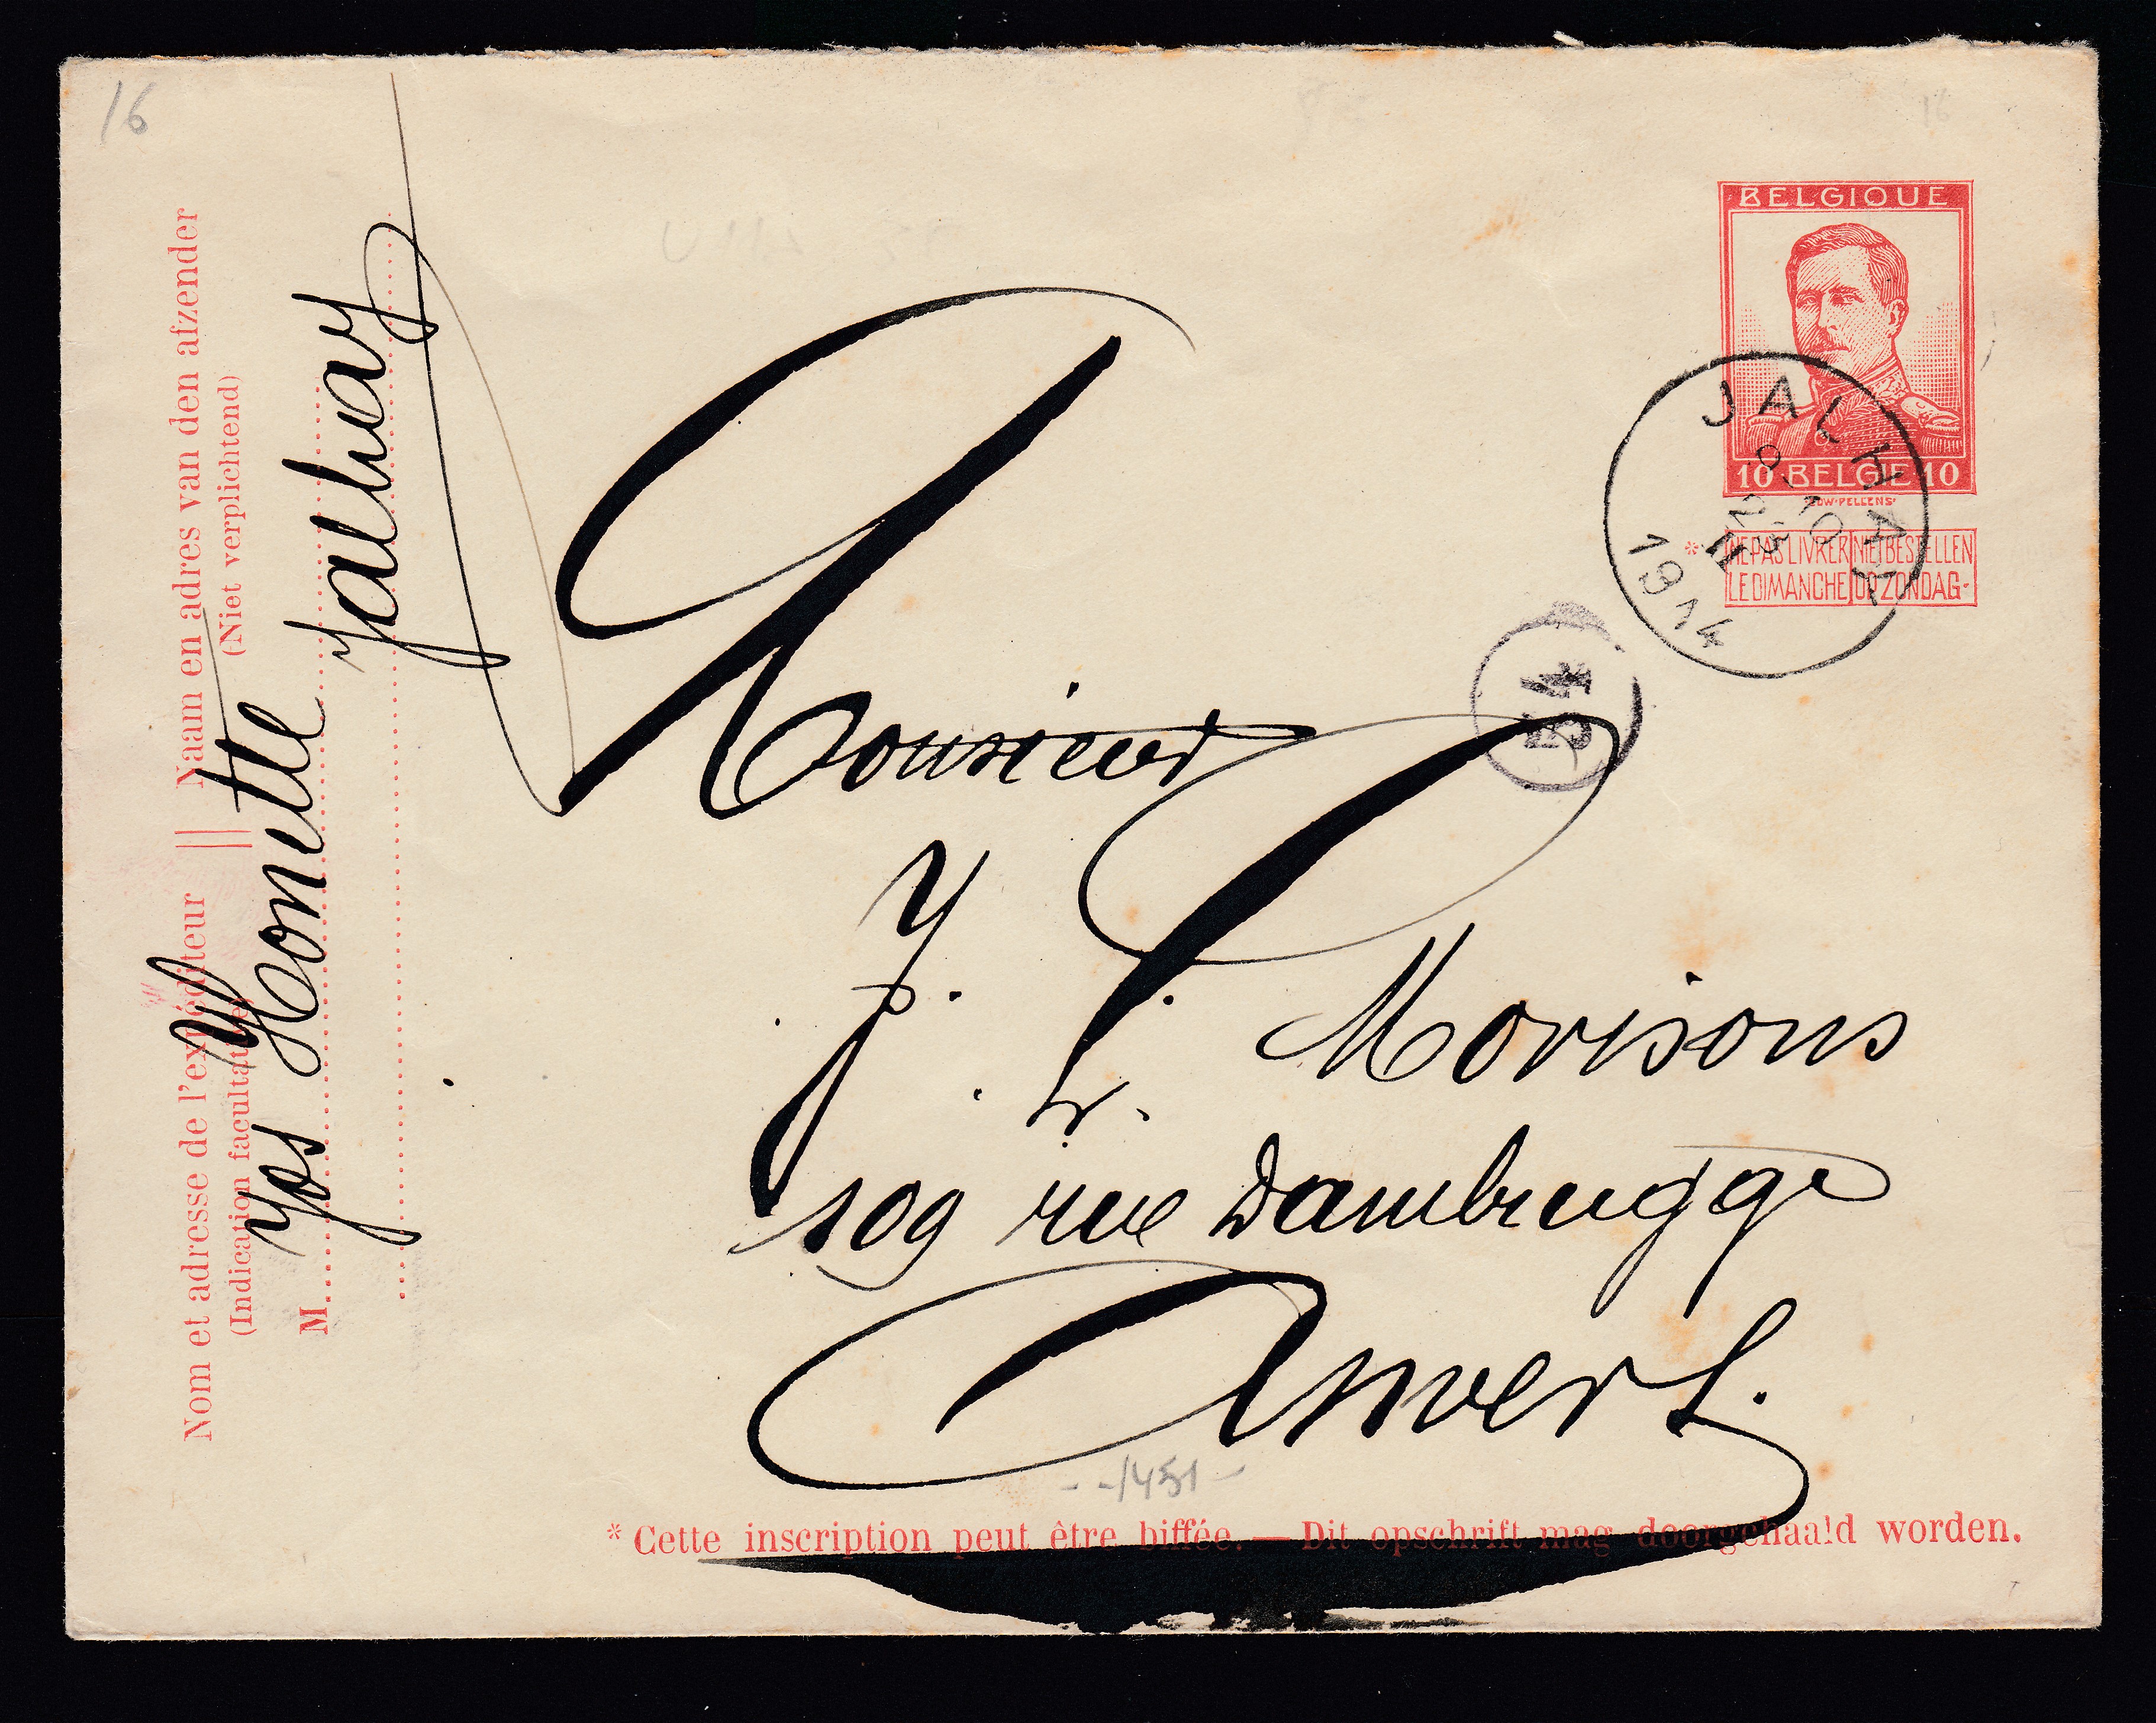 16
BELGIQUE
10 BELGIË 10
NE PAS LIVRER NIET BESTELLEN
* LE DIMANCHE OP ZONDAG
JALHAY
1914
34
Nom et adresse de l'expéditeur || Naam en adres van den afzender
(Indication facultative) (Niet verplichtend)
M. Jos Honitte
Jalhay
Monsieur
J. L. Morisons
109 rue Dambrugge
Anvers.
- -1451-
* Cette inscription peut être biffée. — Dit opschrift mag doorgehaald worden.